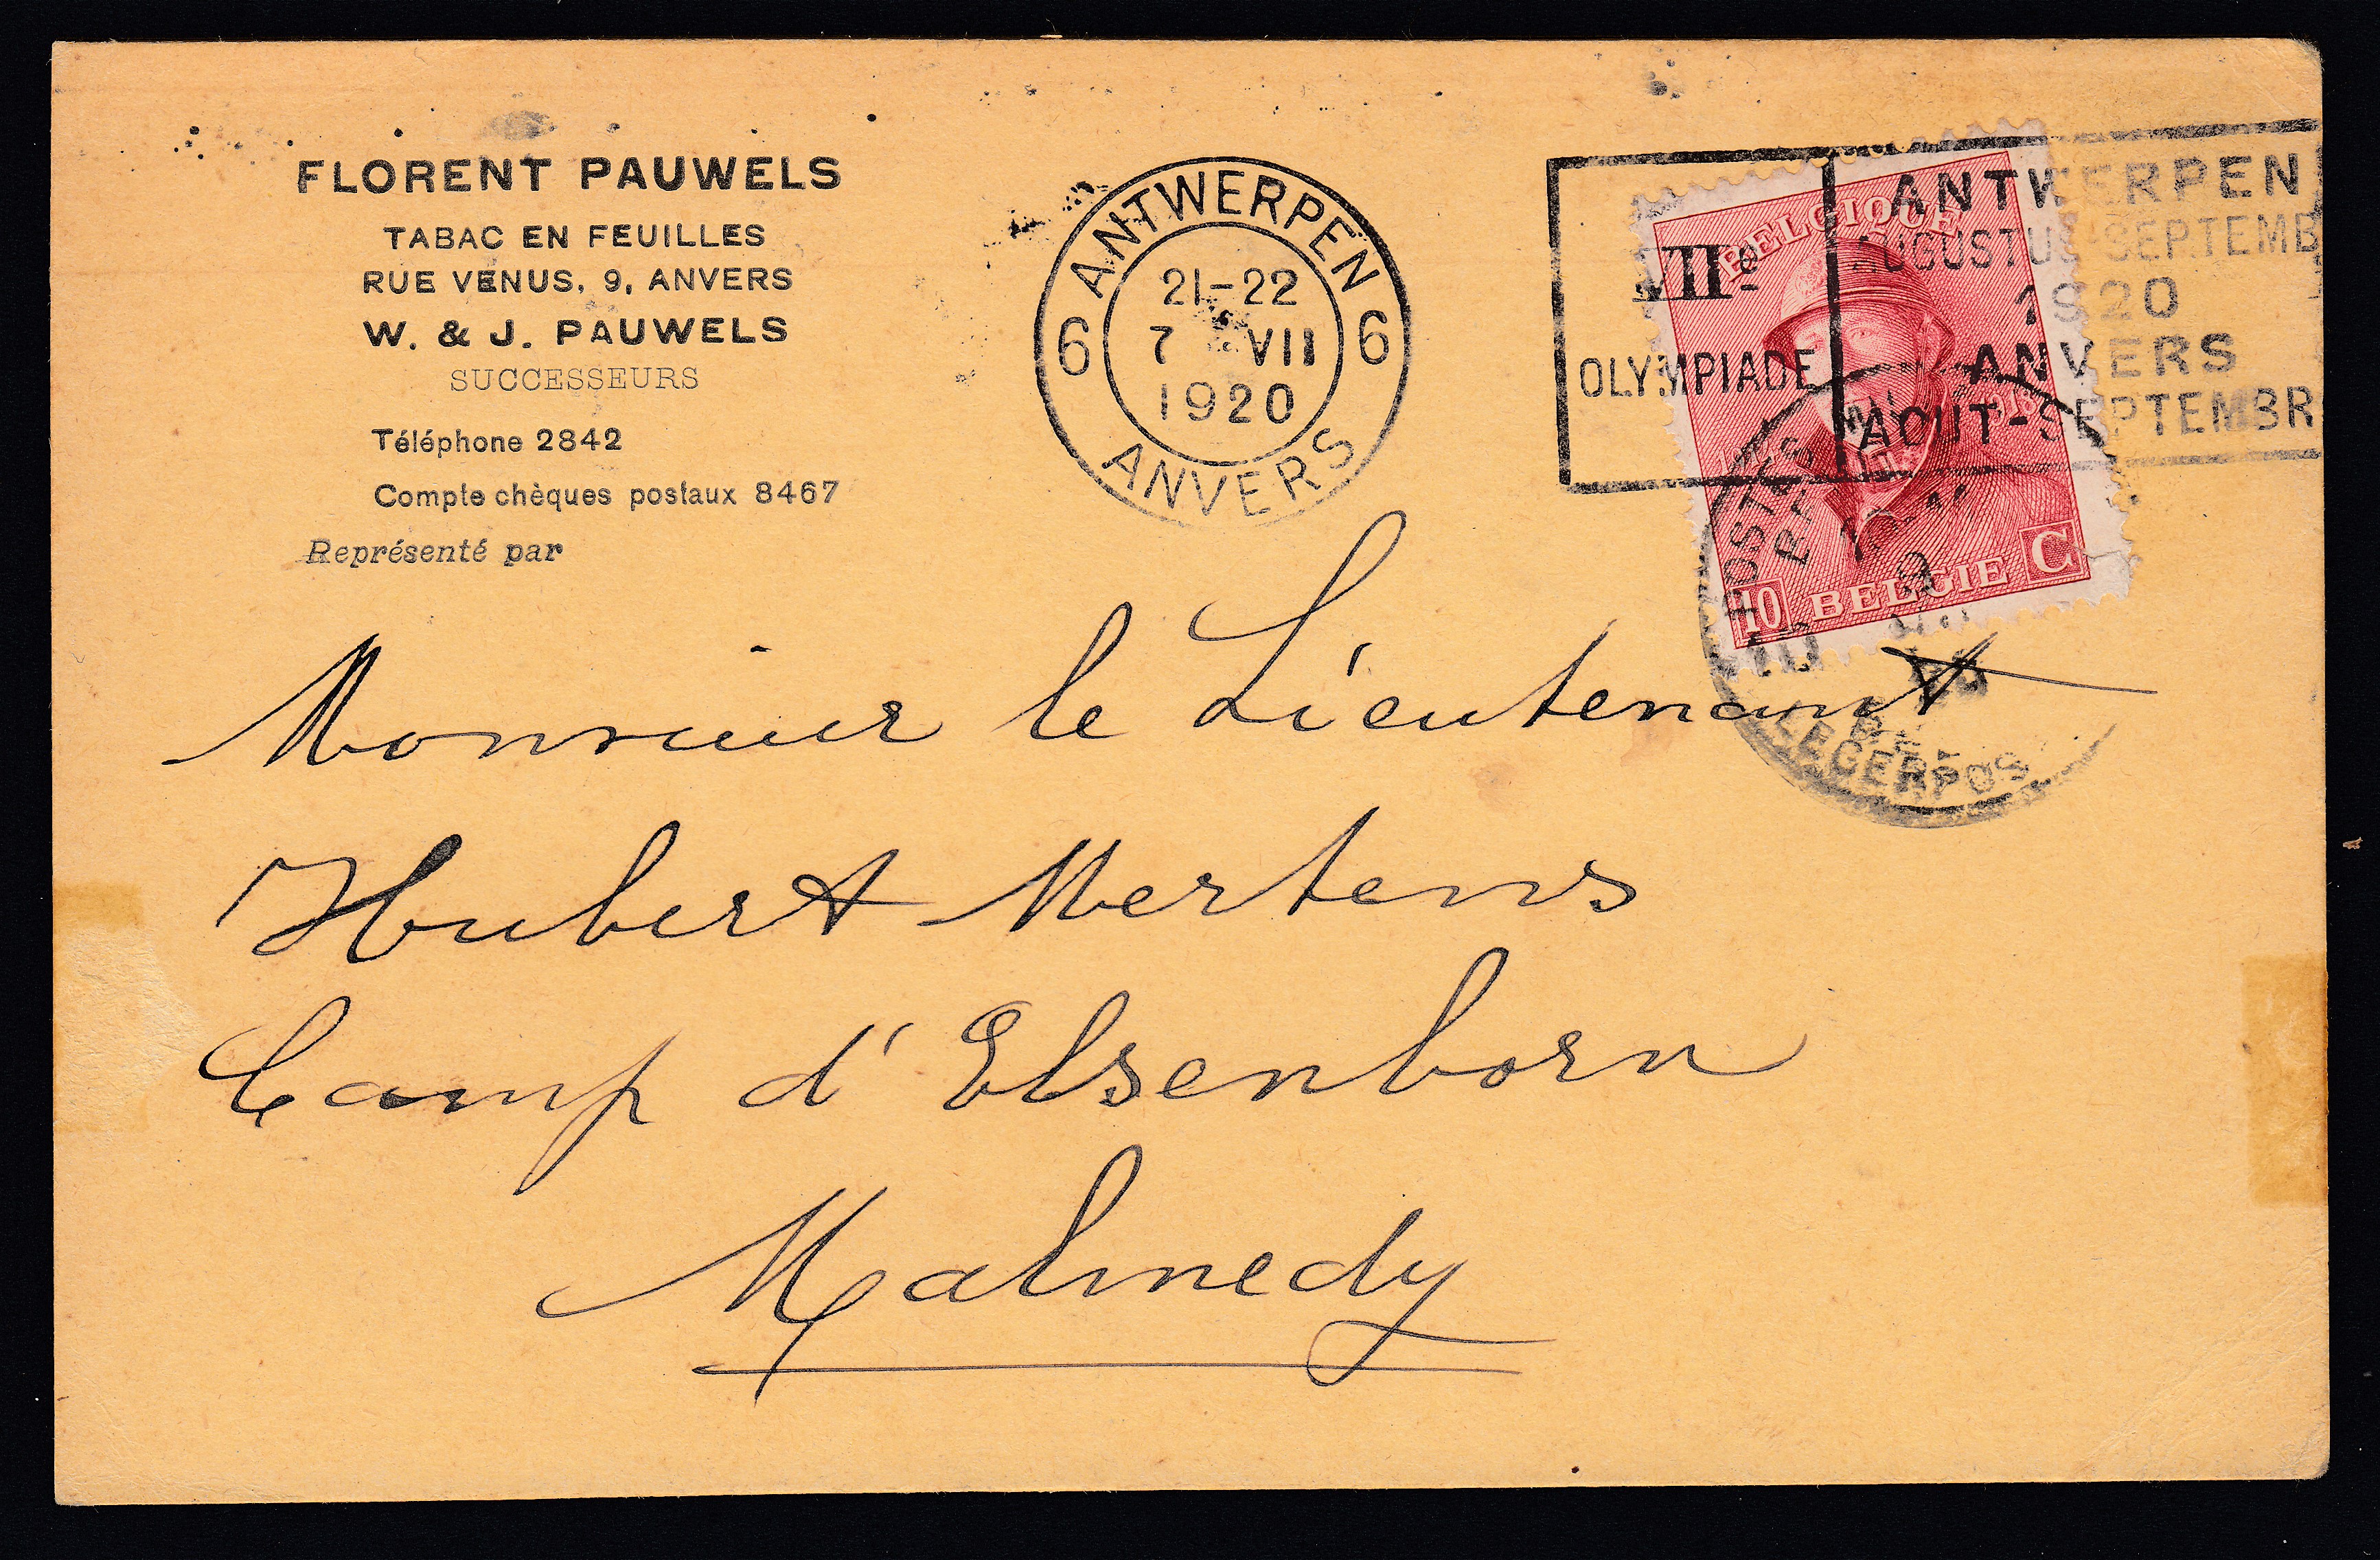 FLORENT PAUWELS
TABAC EN FEUILLES
RUE VENUS, 9, ANVERS
W. & J. PAUWELS
SUCCESSEURS
Téléphone 2842
Compte chèques postaux 8467
Représenté par
ANTWERPEN
6 6
21-22
7 VII
1920
ANVERS
VIIe
OLYMPIADE
ANTWERPEN
AUGUSTUS-SEPTEMB
1920
ANVERS
AOUT-SEPTEMBR
BELGIQUE
10 BELGIE C
POSTES
LEGERPOS
Monsieur le Lieutenant
Hubert Mertens
Camp d'Elsenborn
Malmedy